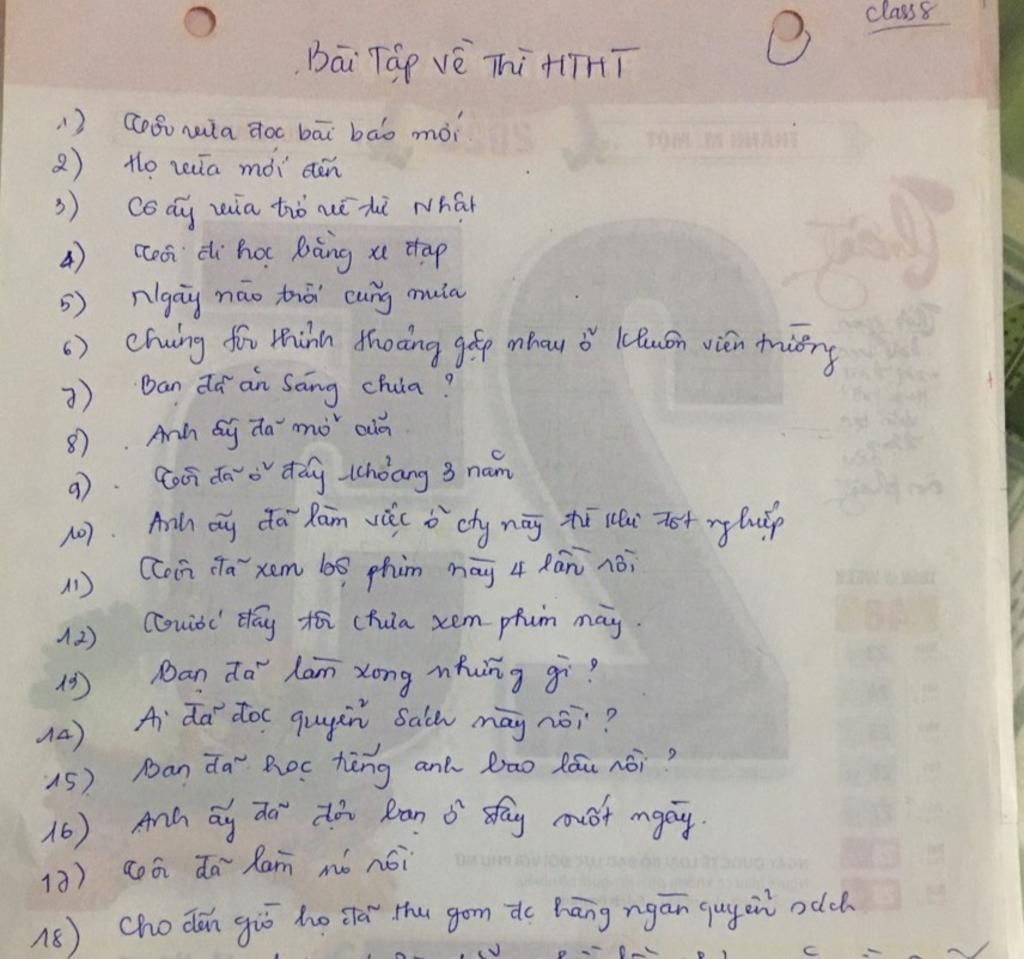 class 8
Bài Tập về Thì HTHT
1) Tôi vừa đọc bài báo mới
2) Họ vừa mới đến
3) Cô ấy vừa trở về từ Nhật
4) Tôi đi học bằng xe đạp
5) Ngày nào trời cũng mưa
6) Chúng tôi thỉnh thoảng gặp nhau ở khuôn viên trường
7) Bạn đã ăn sáng chưa ?
8) Anh ấy đã mở cửa
9) Tôi đã ở đây khoảng 3 năm
10) Anh ấy đã làm việc ở cty này từ khi tốt nghiệp
11) Tôi đã xem bộ phim này 4 lần rồi
12) Trước đây tôi chưa xem phim này .
13) Bạn đã làm xong những gì ?
14) Ai đã đọc quyển sách này rồi ?
15) Bạn đã học tiếng anh bao lâu rồi ?
16) Anh ấy đã đợi bạn ở đây suốt ngày.
17) Tôi đã làm nó rồi
18) Cho đến giờ họ đã thu gom đc hàng ngàn quyển sách
THÁNG M. MỘT